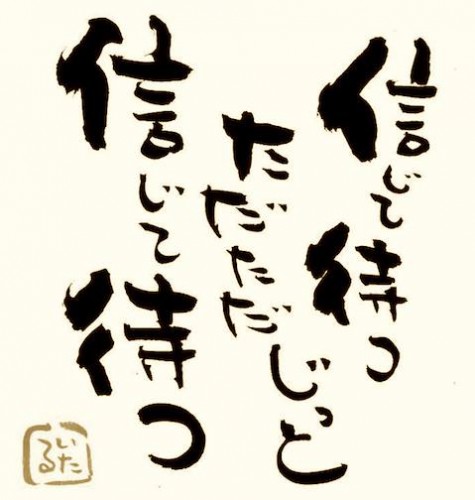 信じて待つ
ただただじっと
信じて待つ
いたる